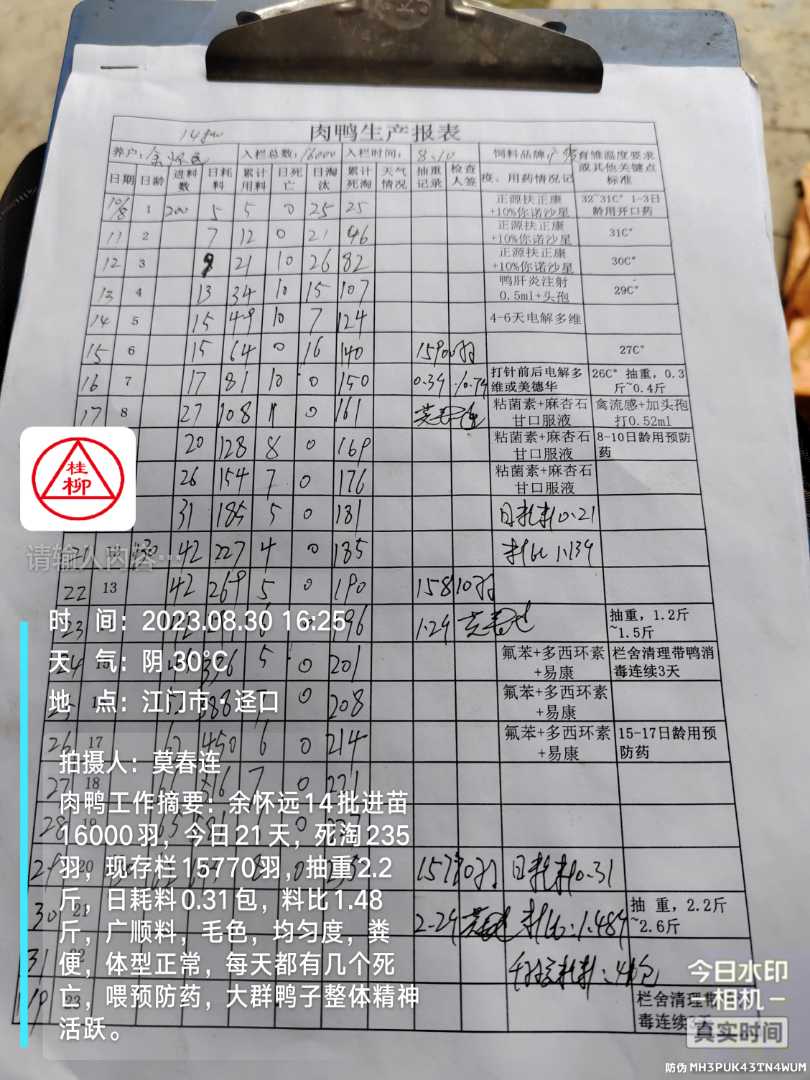 14批
肉鸭生产报表
养户: 余怀远 入栏总数: 16000 入栏时间: 8.10 饲料品牌 广顺 有雏温度要求或其他关键点标准
日期 日龄 进料数 日耗料 累计用料 日死亡 日淘汰 累计死淘 天气情况 抽重记录 检查人签 疫、用药情况记
10/8 1 200 5 5 0 25 25 正源扶正康+10%你诺沙星 32~31C° 1-3日龄用开口药
11 2 7 12 0 21 46 正源扶正康+10%你诺沙星 31C°
12 3 9 21 10 26 82 正源扶正康+10%你诺沙星 30C°
13 4 13 34 10 15 107 鸭肝炎注射0.5ml+头孢 29C°
14 5 15 49 10 7 124 4-6天电解多维
15 6 15 64 0 16 140 15900羽 27C°
16 7 17 81 10 0 150 0.34 打针前后电解多维或美德华 26C° 抽重,0.3斤~0.4斤
17 8 27 108 11 0 161 莫春连 粘菌素+麻杏石甘口服液 禽流感+加头孢打0.52ml
20 128 8 0 169 粘菌素+麻杏石甘口服液 8-10日龄用预防药
26 154 7 0 176 粘菌素+麻杏石甘口服液
31 185 5 0 181 日耗料0.21
桂柳
请输入内容…
42 227 4 0 185 料比1.134
22 13 42 269 5 0 190 15810羽
时 间: 2023.08.30 16:25
23 0 196 1.24 莫春连 抽重,1.2斤~1.5斤
天 气: 阴 30℃
24 5 0 201 氟苯+多西环素+易康 栏舍清理带鸭消毒连续3天
地 点: 江门市·迳口
7 0 208 氟苯+多西环素+易康
26 17 450 6 0 214 氟苯+多西环素+易康 15-17日龄用预防药
拍摄人: 莫春连
27 7 0 221
肉鸭工作摘要: 余怀远14批进苗
28 19
16000羽,今日21天,死淘235
29 20 15770羽 日耗料0.31
羽,现存栏15770羽,抽重2.2
斤,日耗料0.31包,料比1.48
30 21 2.24 莫春连 料比:1.484 抽 重,2.2斤~2.6斤
斤,广顺料,毛色,均匀度,粪
31 22
便,体型正常,每天都有几个死
亡,喂预防药,大群鸭子整体精神
1/9 23 栏舍清理带 毒连续3
活跃。
今日水印
相机
真实时间
防伪 MH3PUK43TN4WUM